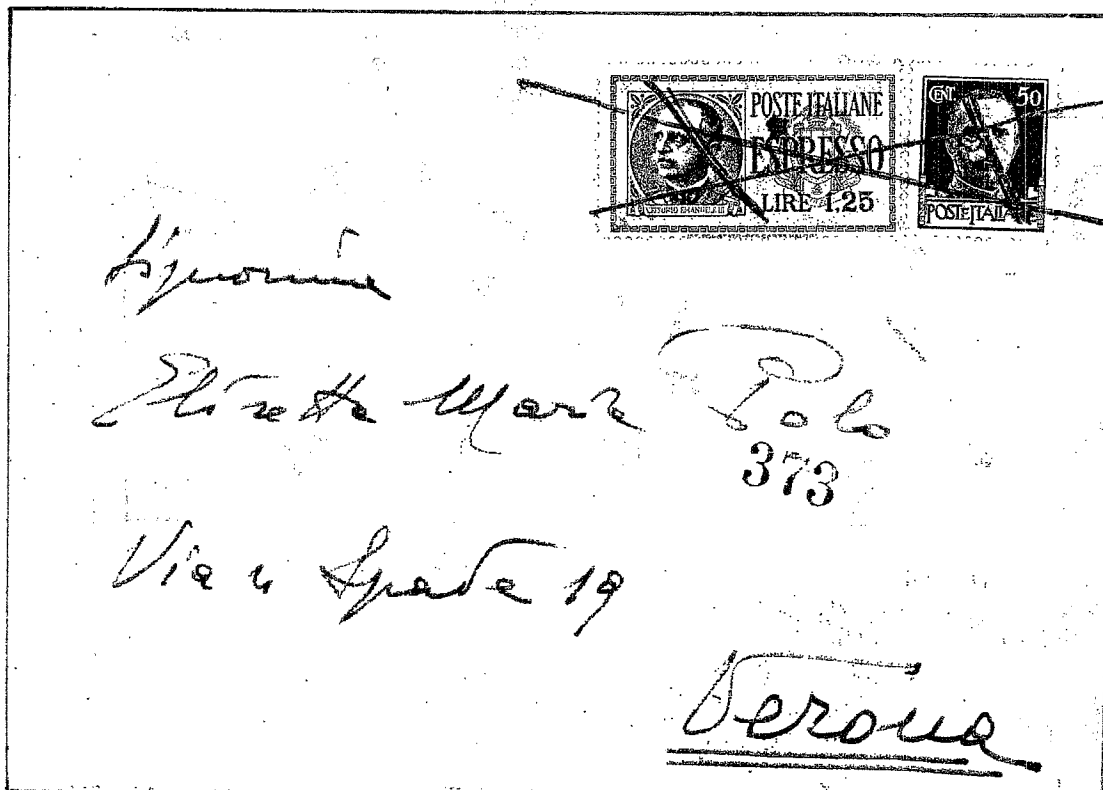 POSTE ITALIANE
ESPRESSO
LIRE 1,25
VITTORIO EMANUELE III
CENT 50
POSTE ITALIANE
Signorina
Elisetta Maria Polo
373
Via 4 Spade 19
Verona